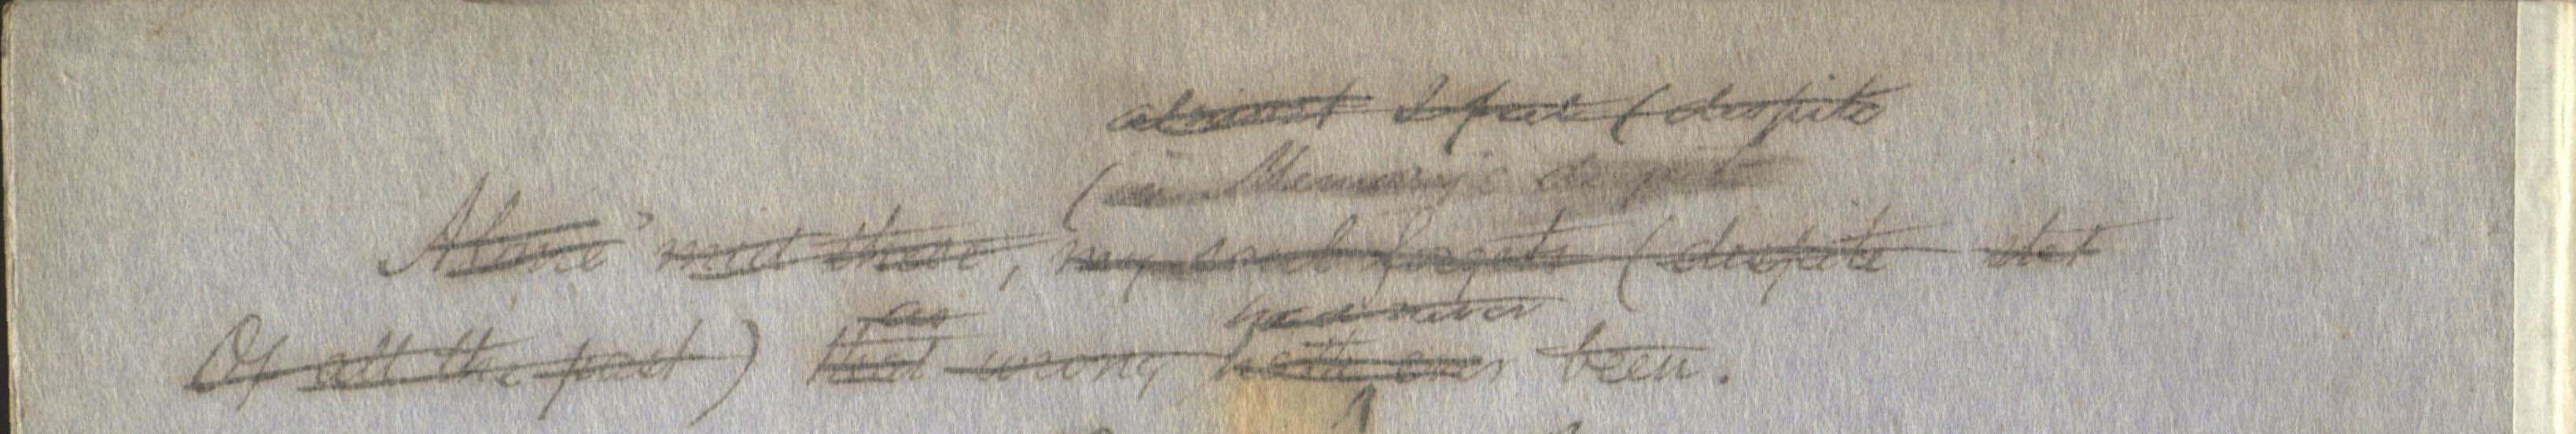 almost I feel (despite
(in Memory's despite
Alone 'mid these, my soul forgets (despite
Of all the past)
as
had never
that wrong hath ever been.